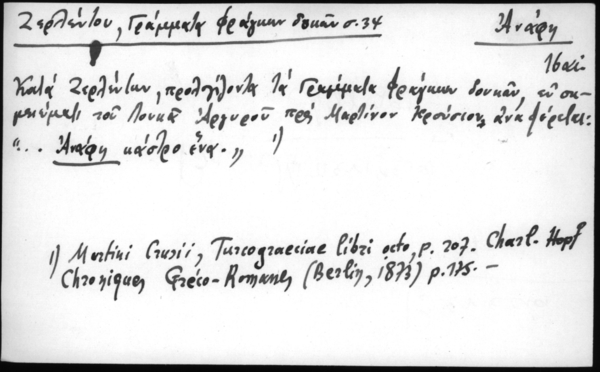 Ζερλέντου, Γράμματα Φράγκων δουκῶν σ. 34
Ἀνάφη
16 αἰ.
Κατά Ζερλέντην, προλογίζοντα τά Γράμματα Φράγκων δουκῶν, ἐν ση-
μειώματι τοῦ Λουκᾶ Ἀργυροῦ πρός Μαρτῖνον Κρούσιον, ἀναφέρεται:
"... Ἀνάφη κάστρο ἕνα." 1)
1) Martini Crusii, Turcograeciae libri octo, p. 207. Charl. Hopf
Chroniques Gréco-Romanes (Berlin, 1873) p. 175. –